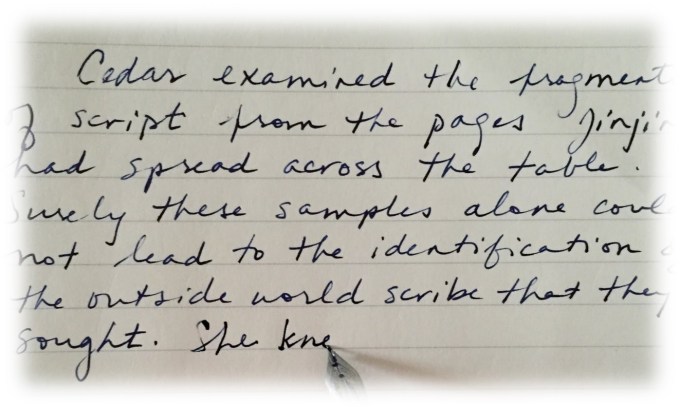 Cedar examined the fragment
of script from the pages Jinjin
had spread across the table.
Surely these samples alone coul
not lead to the identification o
the outside world scribe that they
sought. She kne